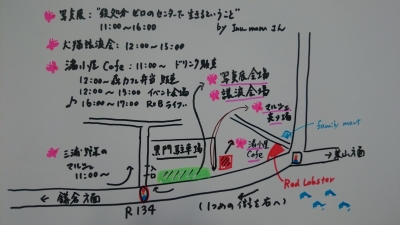 写真展："殺処分ゼロのセンターで生きるということ"
11:00～16:00
by Inu mam さん
犬猫譲渡会：12:00～15:00
湯小屋 Cafe：11:00～ ドリンク販売
12:00～ 森カフェ弁当 販売
12:00～15:00 イベント会場
♪ 16:00～17:00 R&Bライブ
写真展会場
譲渡会場
マルシェ
family mart
三浦野菜の
マルシェ
11:00～
黒門駐車場
湯小屋
Cafe
入口
葉山方面
Red Lobster
← 鎌倉方面
R134
(1つめの信号を右へ)